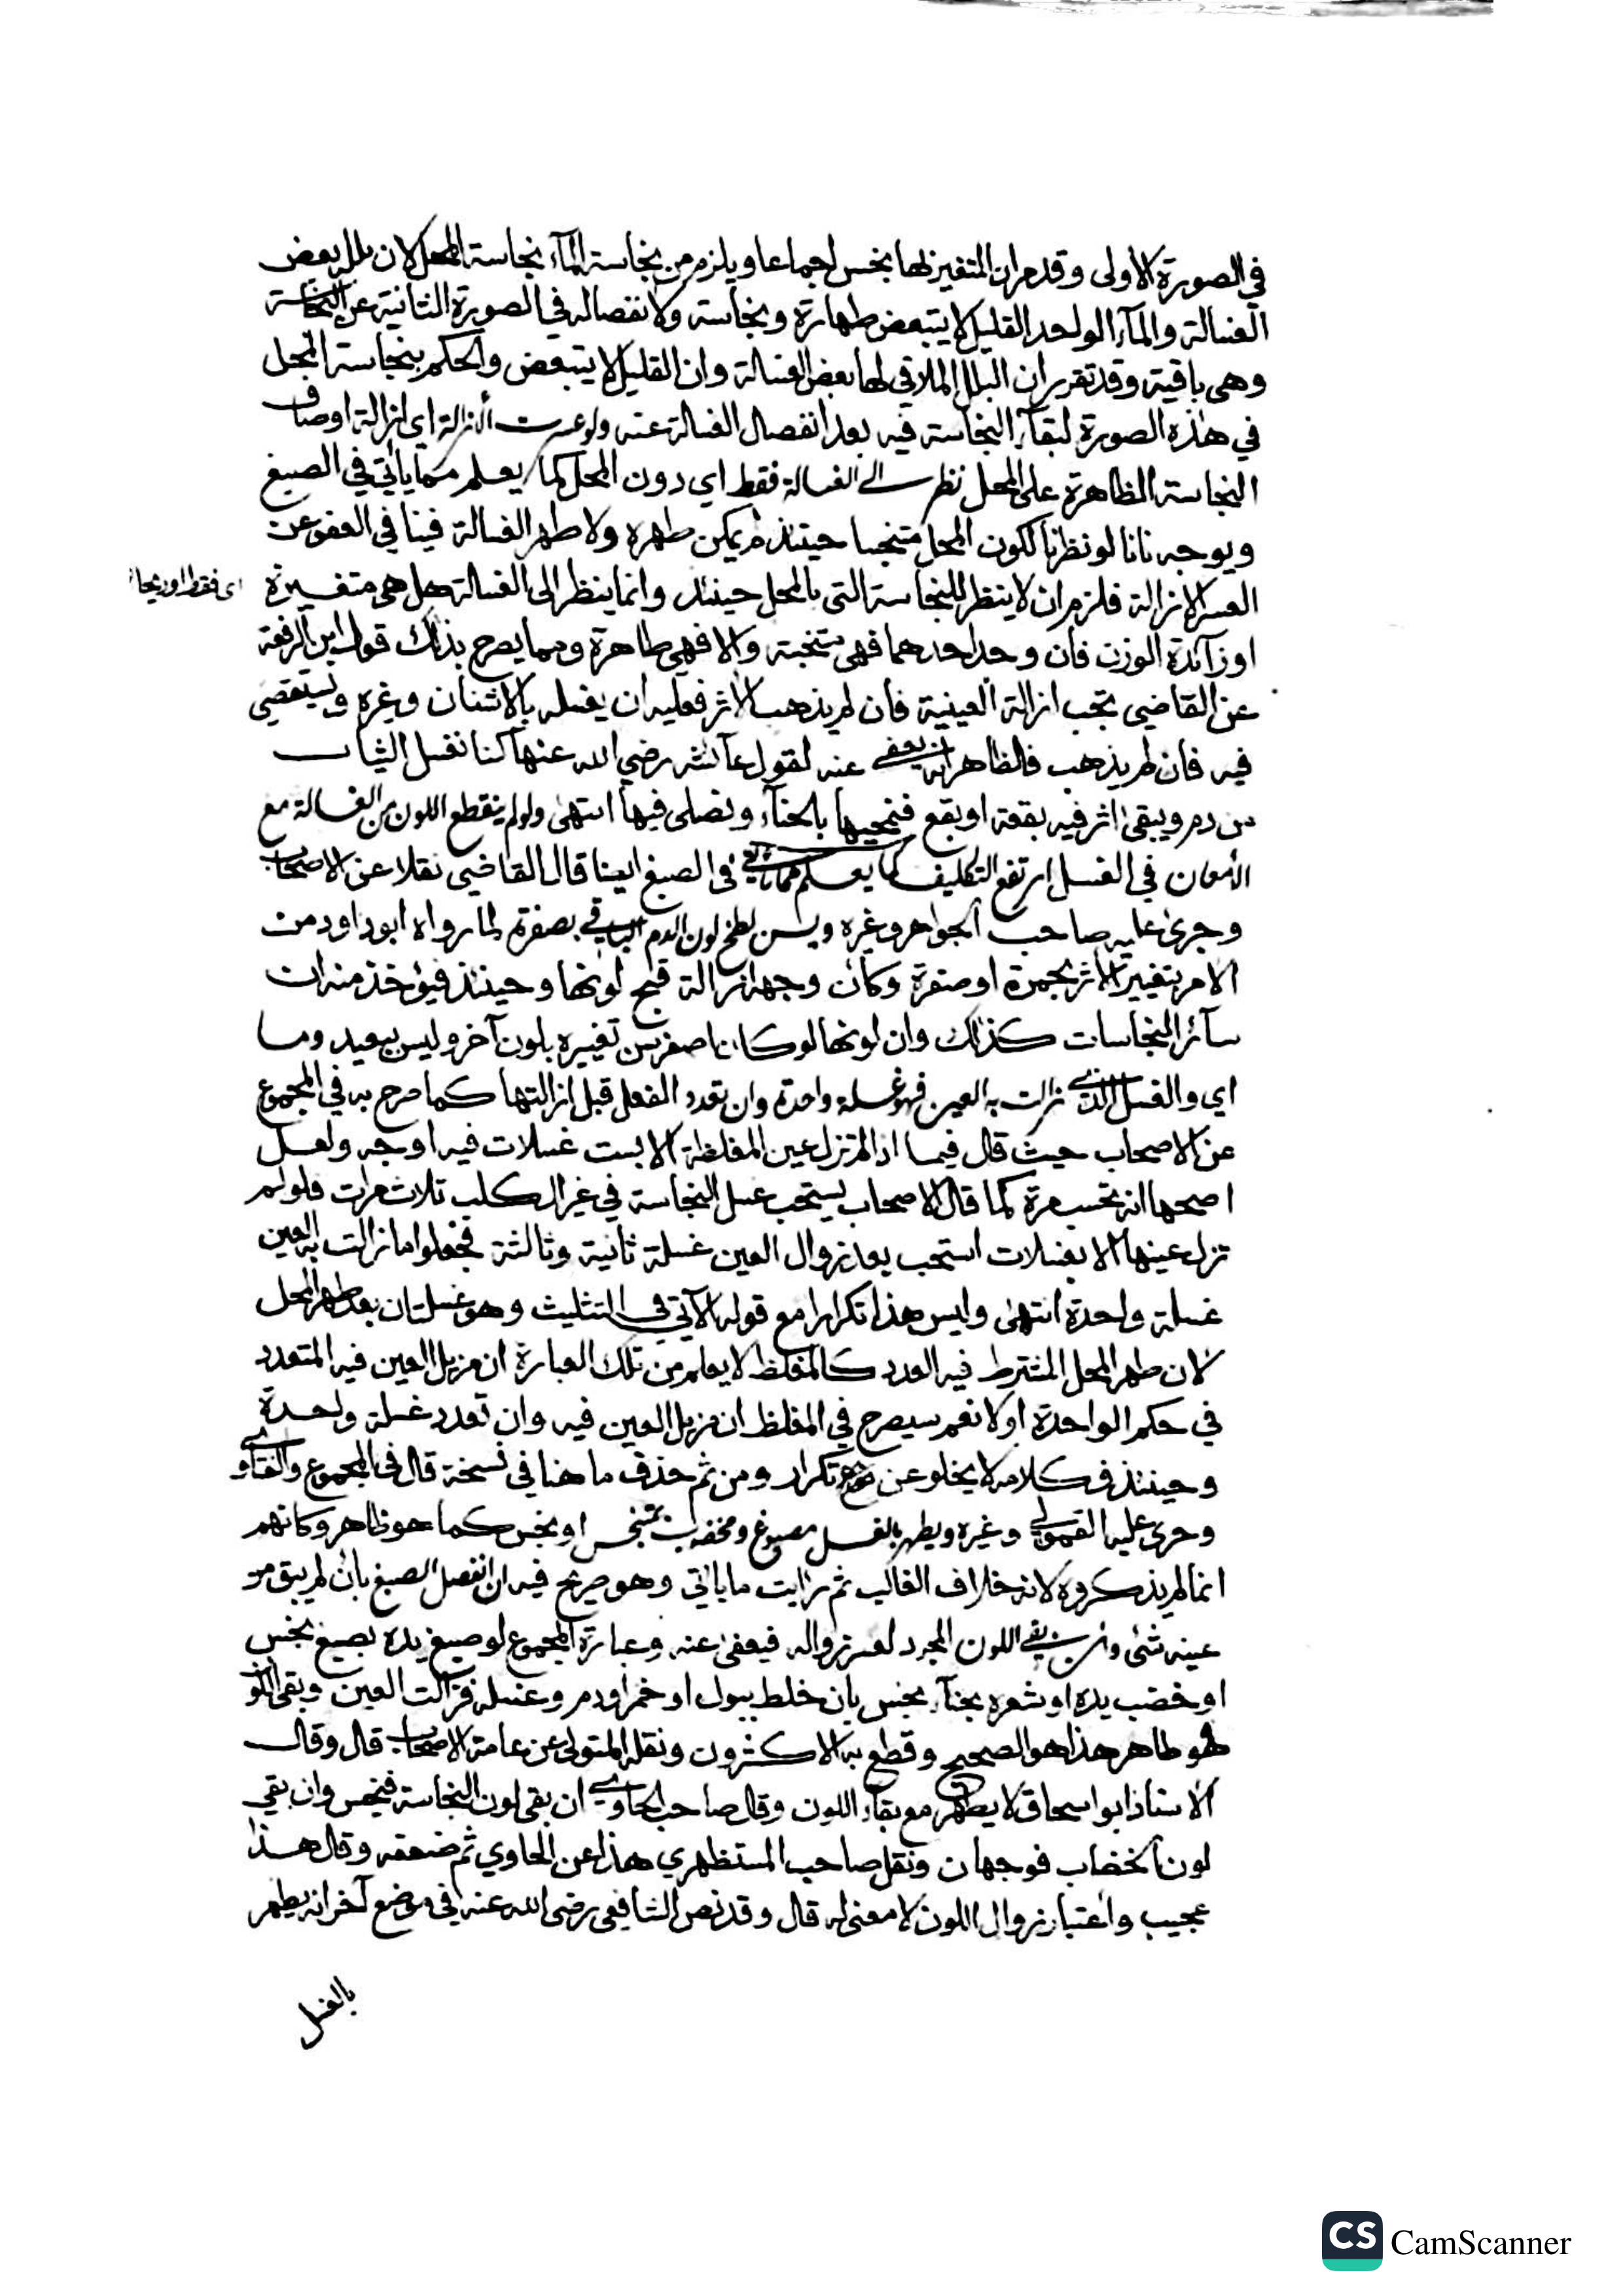 في الصورة الاولى وقد مر ان المتغير بها نجس اجماعا ويلزم من نجاسة المآء نجاسة المحل لان بلله بعض
الغسالة والمآء الواحد القليل لا يتبعض طهارة ونجاسة ولانفصاله في الصورة الثانية عن النجاسة
وهى باقية وقد تقرر ان البلل الملاقي لها بعض الغسالة وان القليل لا يتبعض والحكم بنجاسة المحل
في هذه الصورة لبقآء النجاسة فيه بعد انفصال الغسالة عنه ولو عسرت ازالة اي ازالة اوصاف
النجاسة الظاهرة على المحل نظر الى الغسالة فقط اي دون المحل كما يعلم مما ياتي في الصبغ
ويوجه بانا لو نظرنا لكون المحل متنجسا حينئذ لم يمكن طهره ولا طهر الغسالة فينافي العفو عن
العسر الازالة فلزم ان لا ينظر للنجاسة التي بالمحل حينئذ وانما ينظر الى الغسالة هل هى متغيرة
اى فقط او ريحا
او زآئدة الوزن فان وجد احدهما فهى متنجسة والا فهى طاهرة ومما يصرح بذلك قول ابن الرفعة
عن القاضي تجب ازالة العينية فان لم يذهب الاثر فعليه ان يغسله بالاشنان وغيره ويستقصي
فيه فان لم يذهب فالظاهر انه يعفى عنه لقول عآئشة رضي الله عنها كنا نغسل الثياب
من دم ويبقى اثر فيه بقعة او بقع فنمحيها بالحنآء ونصلى فيها انتهى ولو لم ينقطع اللون من الغسالة مع
الامعان في الغسل ارتفع التكليف كما يعلم مما ياتي في الصبغ ايضا قال القاضي نقلا عن الاصحاب
وجرى عليه صاحب الجواهر وغيره ويسن لطخ لون الدم الباقي بصفرة لما رواه ابو داود من
الامر بتغيير الاثر بحمرة او صفرة وكان وجهه ازالة قبح لونها وحينئذ فيؤخذ منه ان
سآئر النجاسات كذلك وان لونها لو كان اصفر سن تغييره بلون آخر وليس ببعيد وما
اي والغسل الذي زالت به العين فهو غسلة واحدة وان تعدد الفعل قبل ازالتها كما صرح به في المجموع
عن الاصحاب حيث قال فيما اذا لم تزل عين المغلظة الا بست غسلات فيه اوجه ولعل
اصحها انه تحسب مرة كما قال الاصحاب يستحب غسل النجاسة في غير الكلب ثلاث مرات فلو لم
تزل عينها الا بغسلات استحب بعد زوال العين غسلة ثانية وثالثة فجعلوا ما زالت به العين
غسلة واحدة انتهى وليس هذا تكرارا مع قوله الآتي في التثليث وهو غسلتان بعد طهر المحل
لان طهر المحل المشترط فيه العدد كالمغلظ لا يعلم من تلك العبارة ان مزيل العين فيه المتعدد
في حكم الواحدة او لا نعم سيصرح في المغلظ ان مزيل العين فيه وان تعدد غسلة واحدة
وحينئذ فكلامه لا يخلو عن نوع تكرار ومن ثم حذف ما هنا في نسخة قال في المجموع والفتاوى
وجرى عليه القمولي وغيره ويطهر بالغسل مصبوغ ومخضوب بمتنجس او نجس كما هو ظاهر وكانهم
انما لم يذكروه لانه خلاف الغالب ثم رايت ما ياتي وهو صريح فيه ان انفصل الصبغ بان لم يبق من
عينه شئ وان بقي اللون المجرد لعسر زواله فيعفى عنه وعبارة المجموع لو صبغ يده بصبغ نجس
او خضب يده او شعره بحنآء نجس بان خلط ببول او خمر او دم وغسله فزالت العين وبقى اللون
فهو طاهر هذا هو الصحيح وقطع به الاكثرون ونقله المتولى عن عامة الاصحاب قال وقال
الاستاذ ابو اسحاق لا يطهر مع بقآء اللون وقال صاحب الحاوي ان بقى لون النجاسة فنجس وان بقي
لون الخضاب فوجهان ونقل صاحب المستظهري هذا عن الحاوي ثم ضعفه وقال هذا
عجيب واعتبار زوال اللون لا معنى له قال وقد نص الشافعى رضى الله عنه في موضع آخر انه يطهر
بالغسل
CS CamScanner